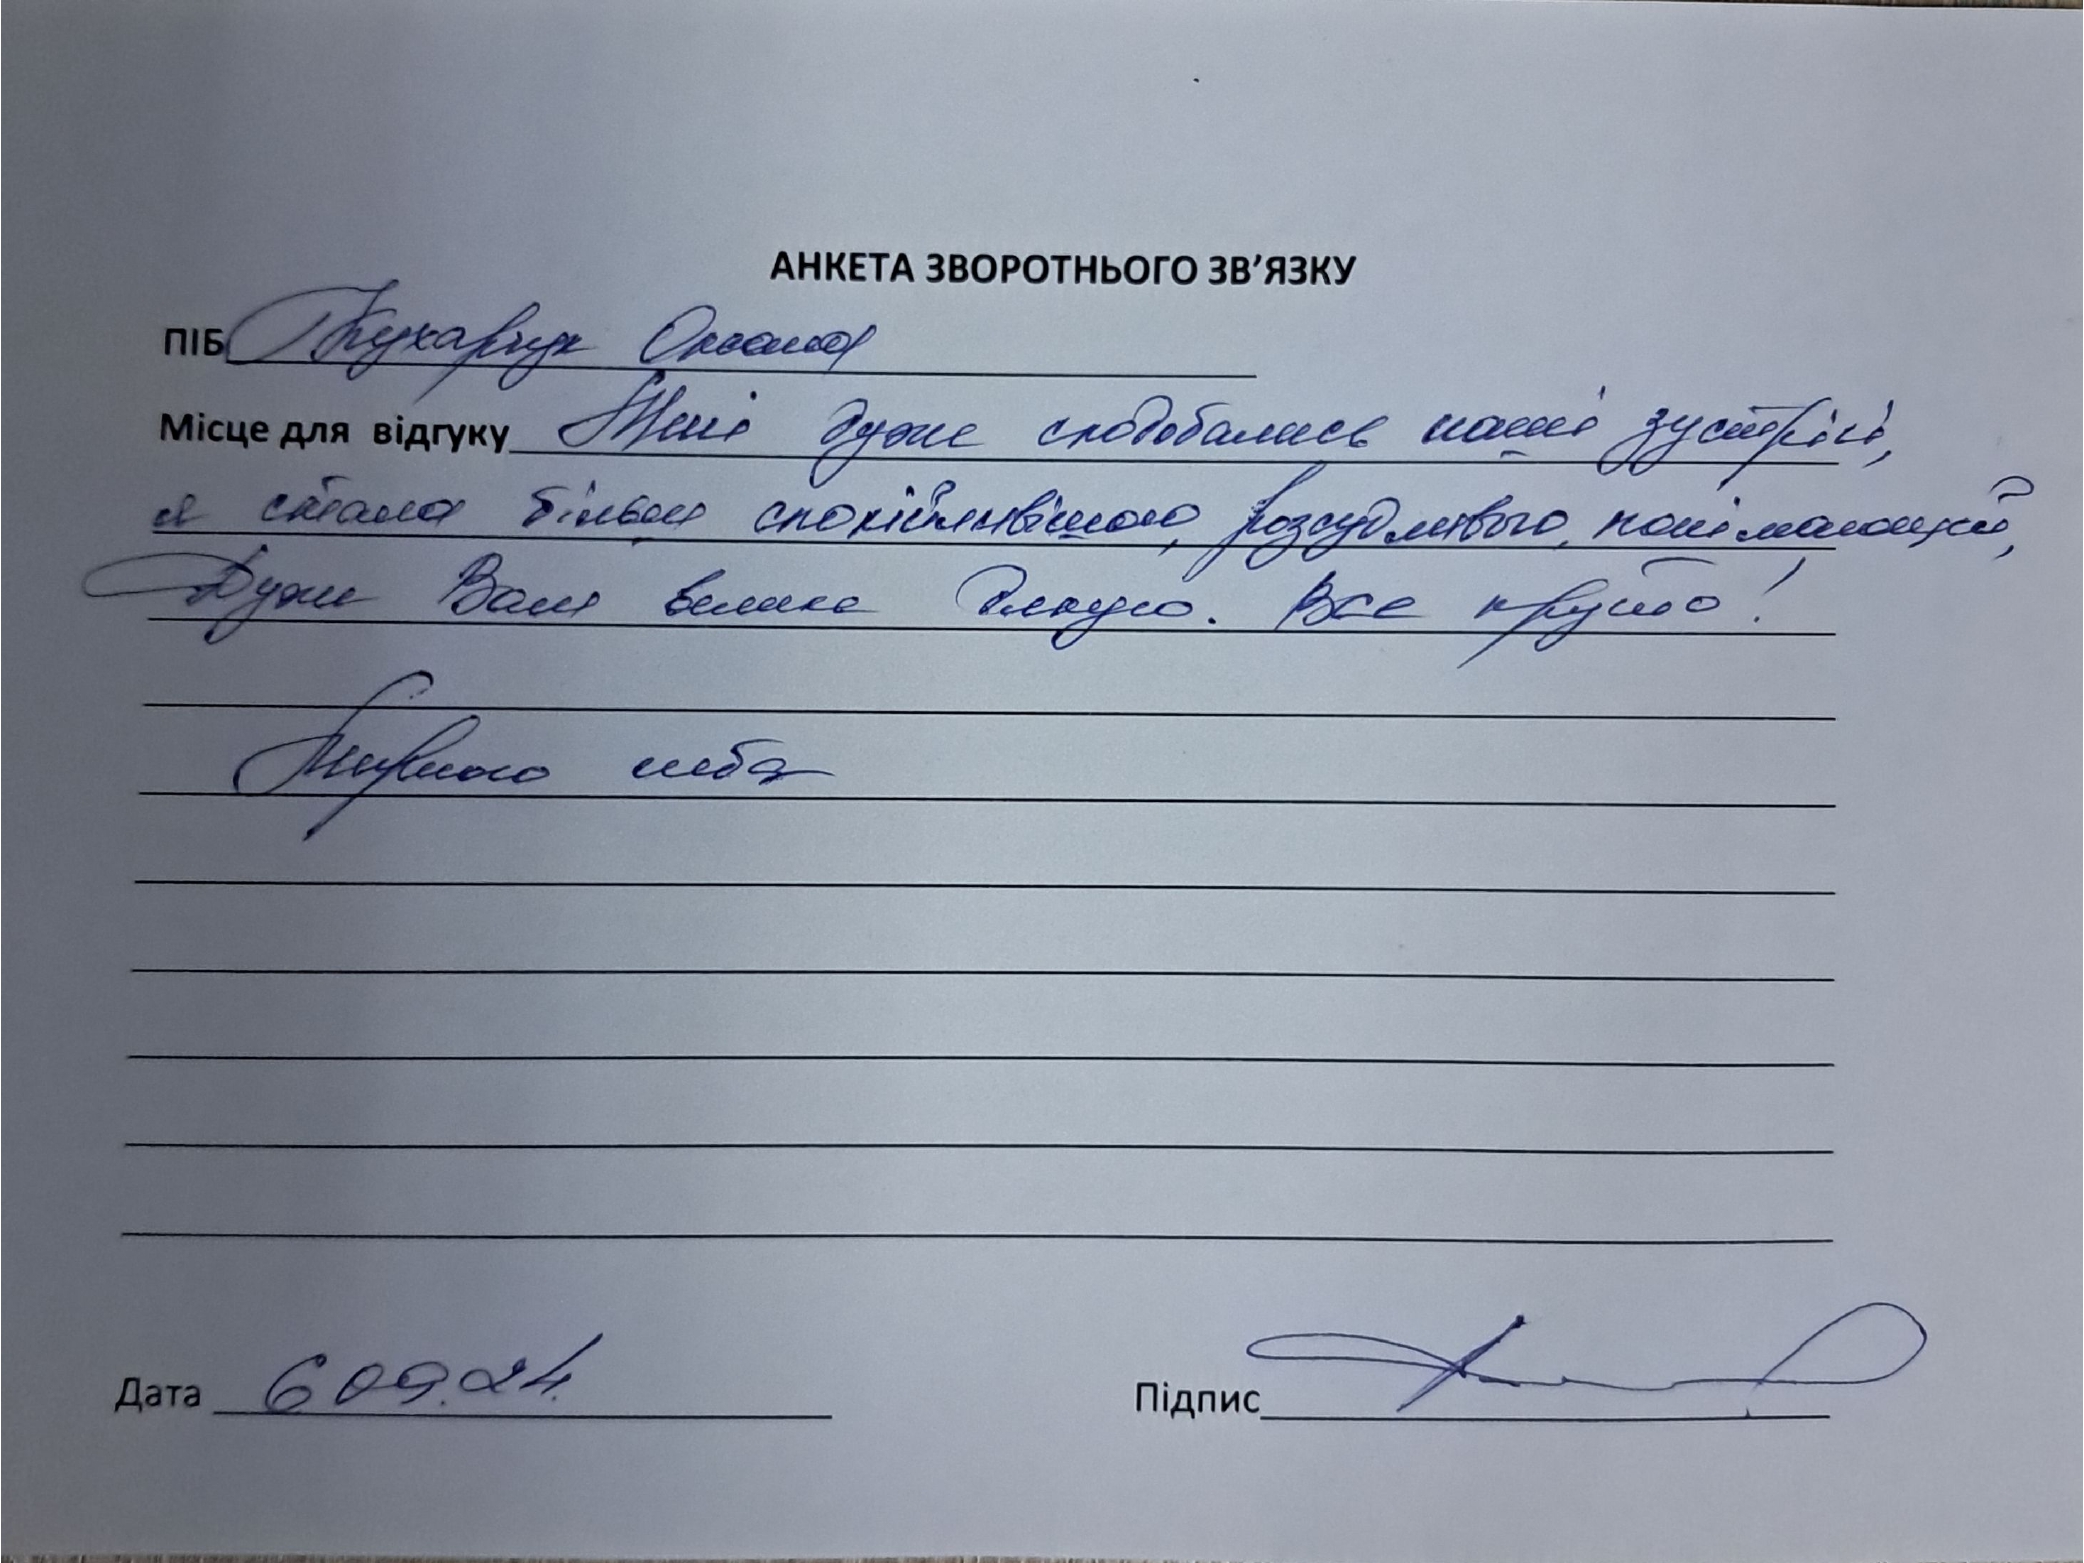 АНКЕТА ЗВОРОТНЬОГО ЗВ’ЯЗКУ
ПІБ Кухарчук Оксана
Місце для відгуку Мені дуже сподобались наші зустрічі,
я стала більш спокійнівішою, розсудливою, понімающей,
Дуже Вам велике дякую. Все круто!
Мирного неба
Дата 6 09.24.
Підпис